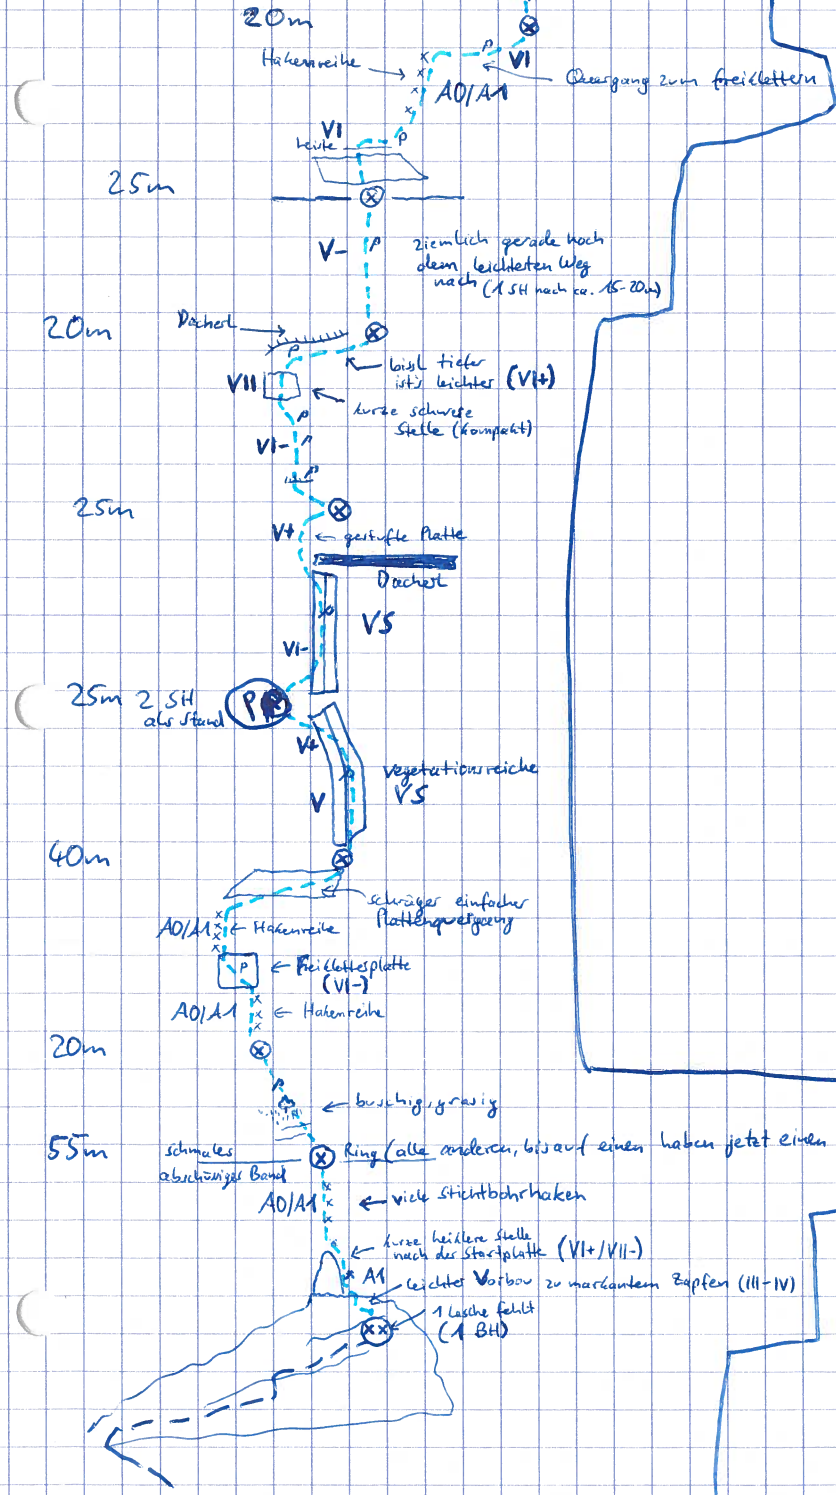 20m
P
VI
Hakenreihe
Quergang zum freiklettern
A0/A1
VI
P
Leiste
25m
V-
P
ziemlich gerade hoch
dem leichtesten Weg
nach (1 SH nach ca. 15-20m)
Dacherl
20m
P
bissl tiefer
ist's leichter (VI+)
VII
kurze schwere
Stelle (kompakt)
P
VI-
P
P
25m
V+
gestufte Platte
Dacherl
VS
VI-
25m
2 SH
als Stand
P
V+
vegetationsreiche
VS
V
40m
schräger einfacher
Plattenquergang
A0/A1
Hakenreihe
P
Freikletterplatte
(VI-)
A0/A1
Hakenreihe
20m
P
buschig, grasig
55m
schmales
abschüssiges Band
Ring (alle anderen, bis auf einen haben jetzt einen
A0/A1
viele Stichtbohrhaken
kurze heiklere Stelle
nach der Startplatte (VI+/VII-)
A1
leichter Vorbau zu markantem Zapfen (III-IV)
1 Lasche fehlt
(1 BH)